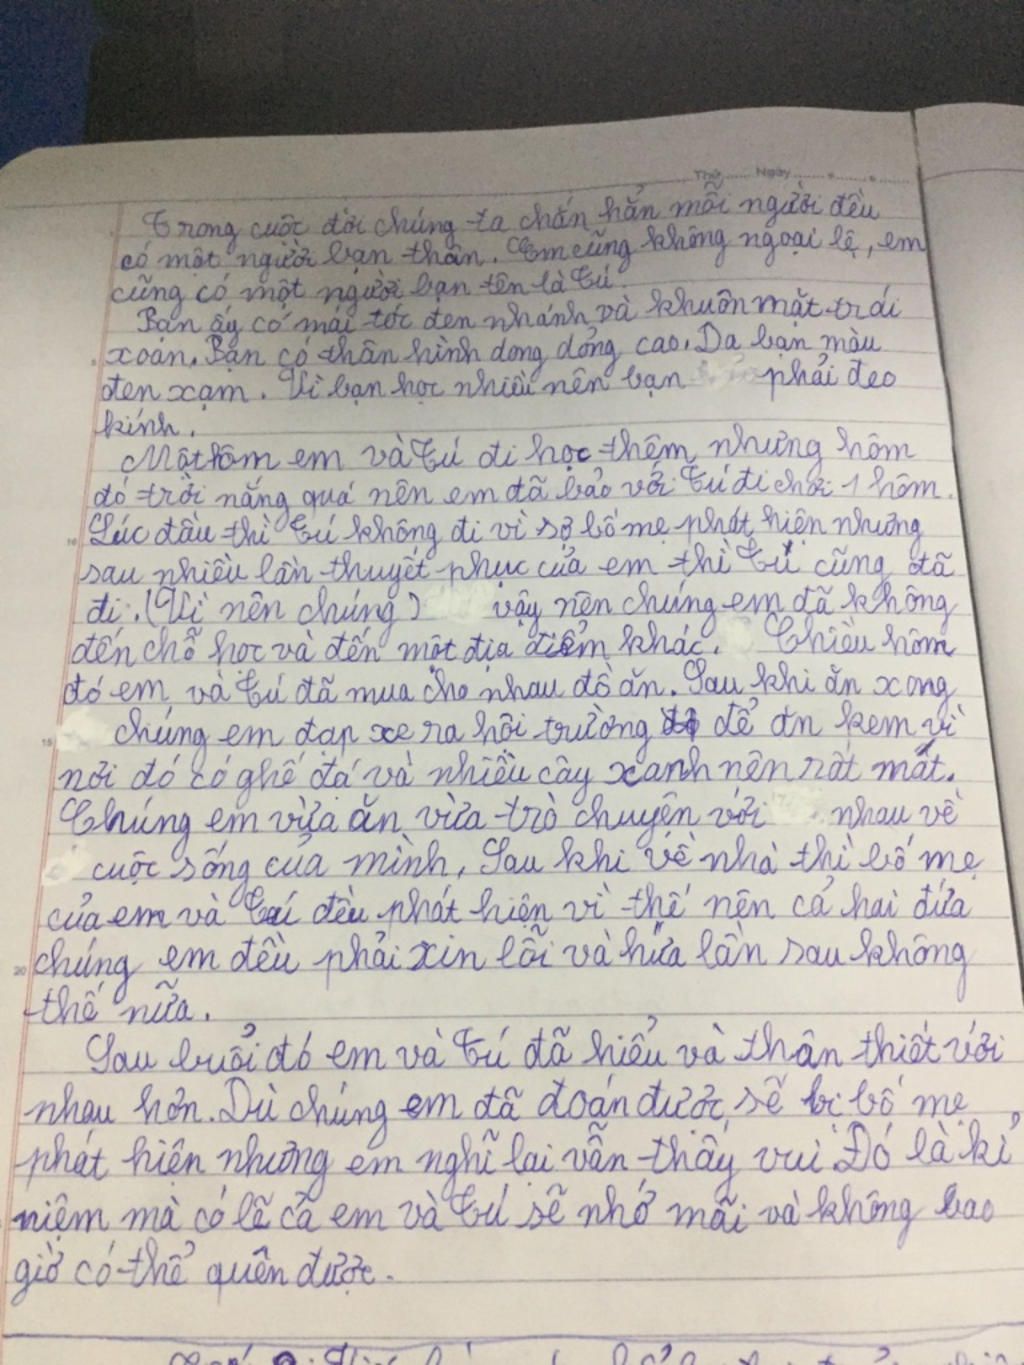 Thứ ........ Ngày ........
Trong cuộc đời chúng ta chắn hẳn mỗi người đều
có một người bạn thân. Em cũng không ngoại lệ, em
cũng có một người bạn tên là Tú.
Bạn ấy có mái tóc đen nhánh và khuôn mặt trái
xoan. Bạn có thân hình dong dỏng cao. Da bạn màu
đen xạm. Vì bạn học nhiều nên bạn phải đeo
kính.
Một hôm em và Tú đi học thêm nhưng hôm
đó trời nắng quá nên em đã bảo với Tú đi chơi 1 hôm.
10 Lúc đầu thì Tú không đi vì sợ bố mẹ phát hiện nhưng
sau nhiều lần thuyết phục của em thì Tú cũng đã
đi. (Vì nên chúng) vậy nên chúng em đã không
đến chỗ học và đến một địa điểm khác. Chiều hôm
đó em và Tú đã mua cho nhau đồ ăn. Sau khi ăn xong
15 chúng em đạp xe ra hội trường để ăn kem vì
nơi đó có ghế đá và nhiều cây xanh nên rất mát.
Chúng em vừa ăn vừa trò chuyện với nhau về
cuộc sống của mình, Sau khi về nhà thì bố mẹ
của em và Tú đều phát hiện vì thế nên cả hai đứa
20 chúng em đều phải xin lỗi và hứa lần sau không
thế nữa.
Sau buổi đó em và Tú đã hiểu và thân thiết với
nhau hơn. Dù chúng em đã đoán được sẽ bị bố mẹ
phát hiện nhưng em nghĩ lại vẫn thấy vui. Đó là kỉ
niệm mà có lẽ cả em và Tú sẽ nhớ mãi và không bao
giờ có thể quên được.